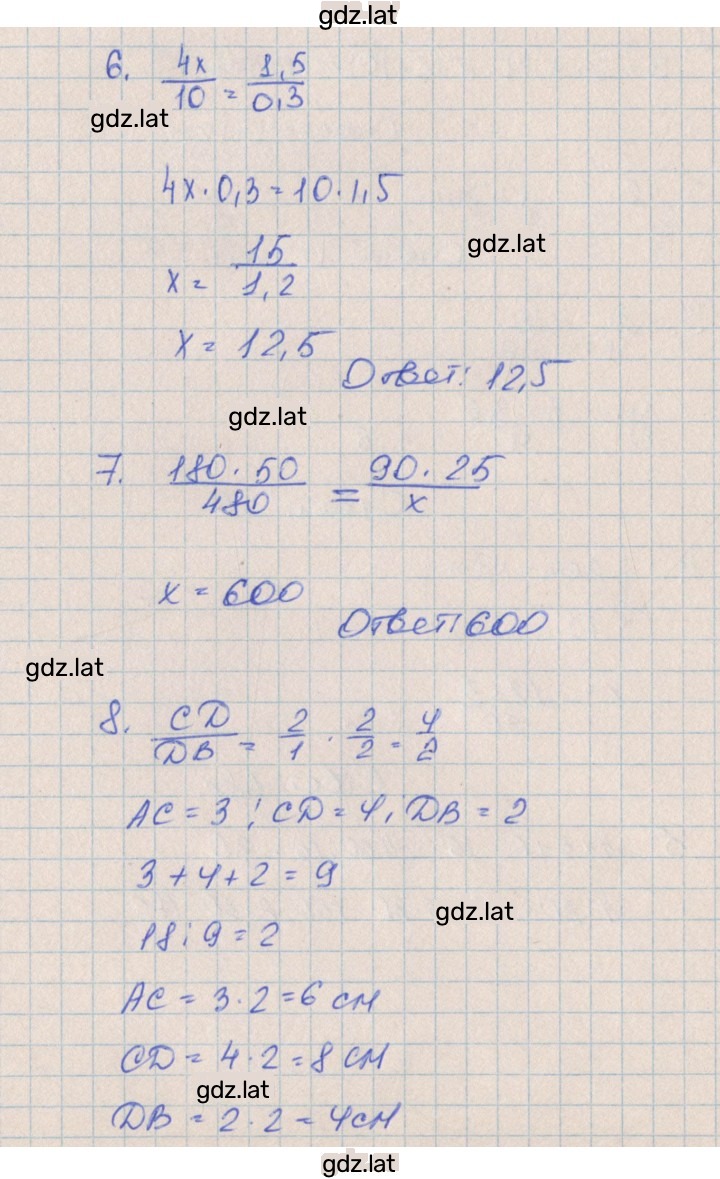 gdz.lat
6. 4x/10 = 1,5/0,3
gdz.lat
4x·0,3=10·1,5
gdz.lat
x = 15/1,2
x = 12,5
Ответ: 12,5
gdz.lat
7. 180·50/480 = 90·25/x
x = 600
Ответ: 600
gdz.lat
8. CD/DB = 2/1 · 2/2 = 4/2
AC = 3; CD = 4; DB = 2
3+4+2=9
gdz.lat
18:9=2
AC = 3·2=6 см
CD = 4·2=8 см
gdz.lat
DB = 2·2=4см
gdz.lat